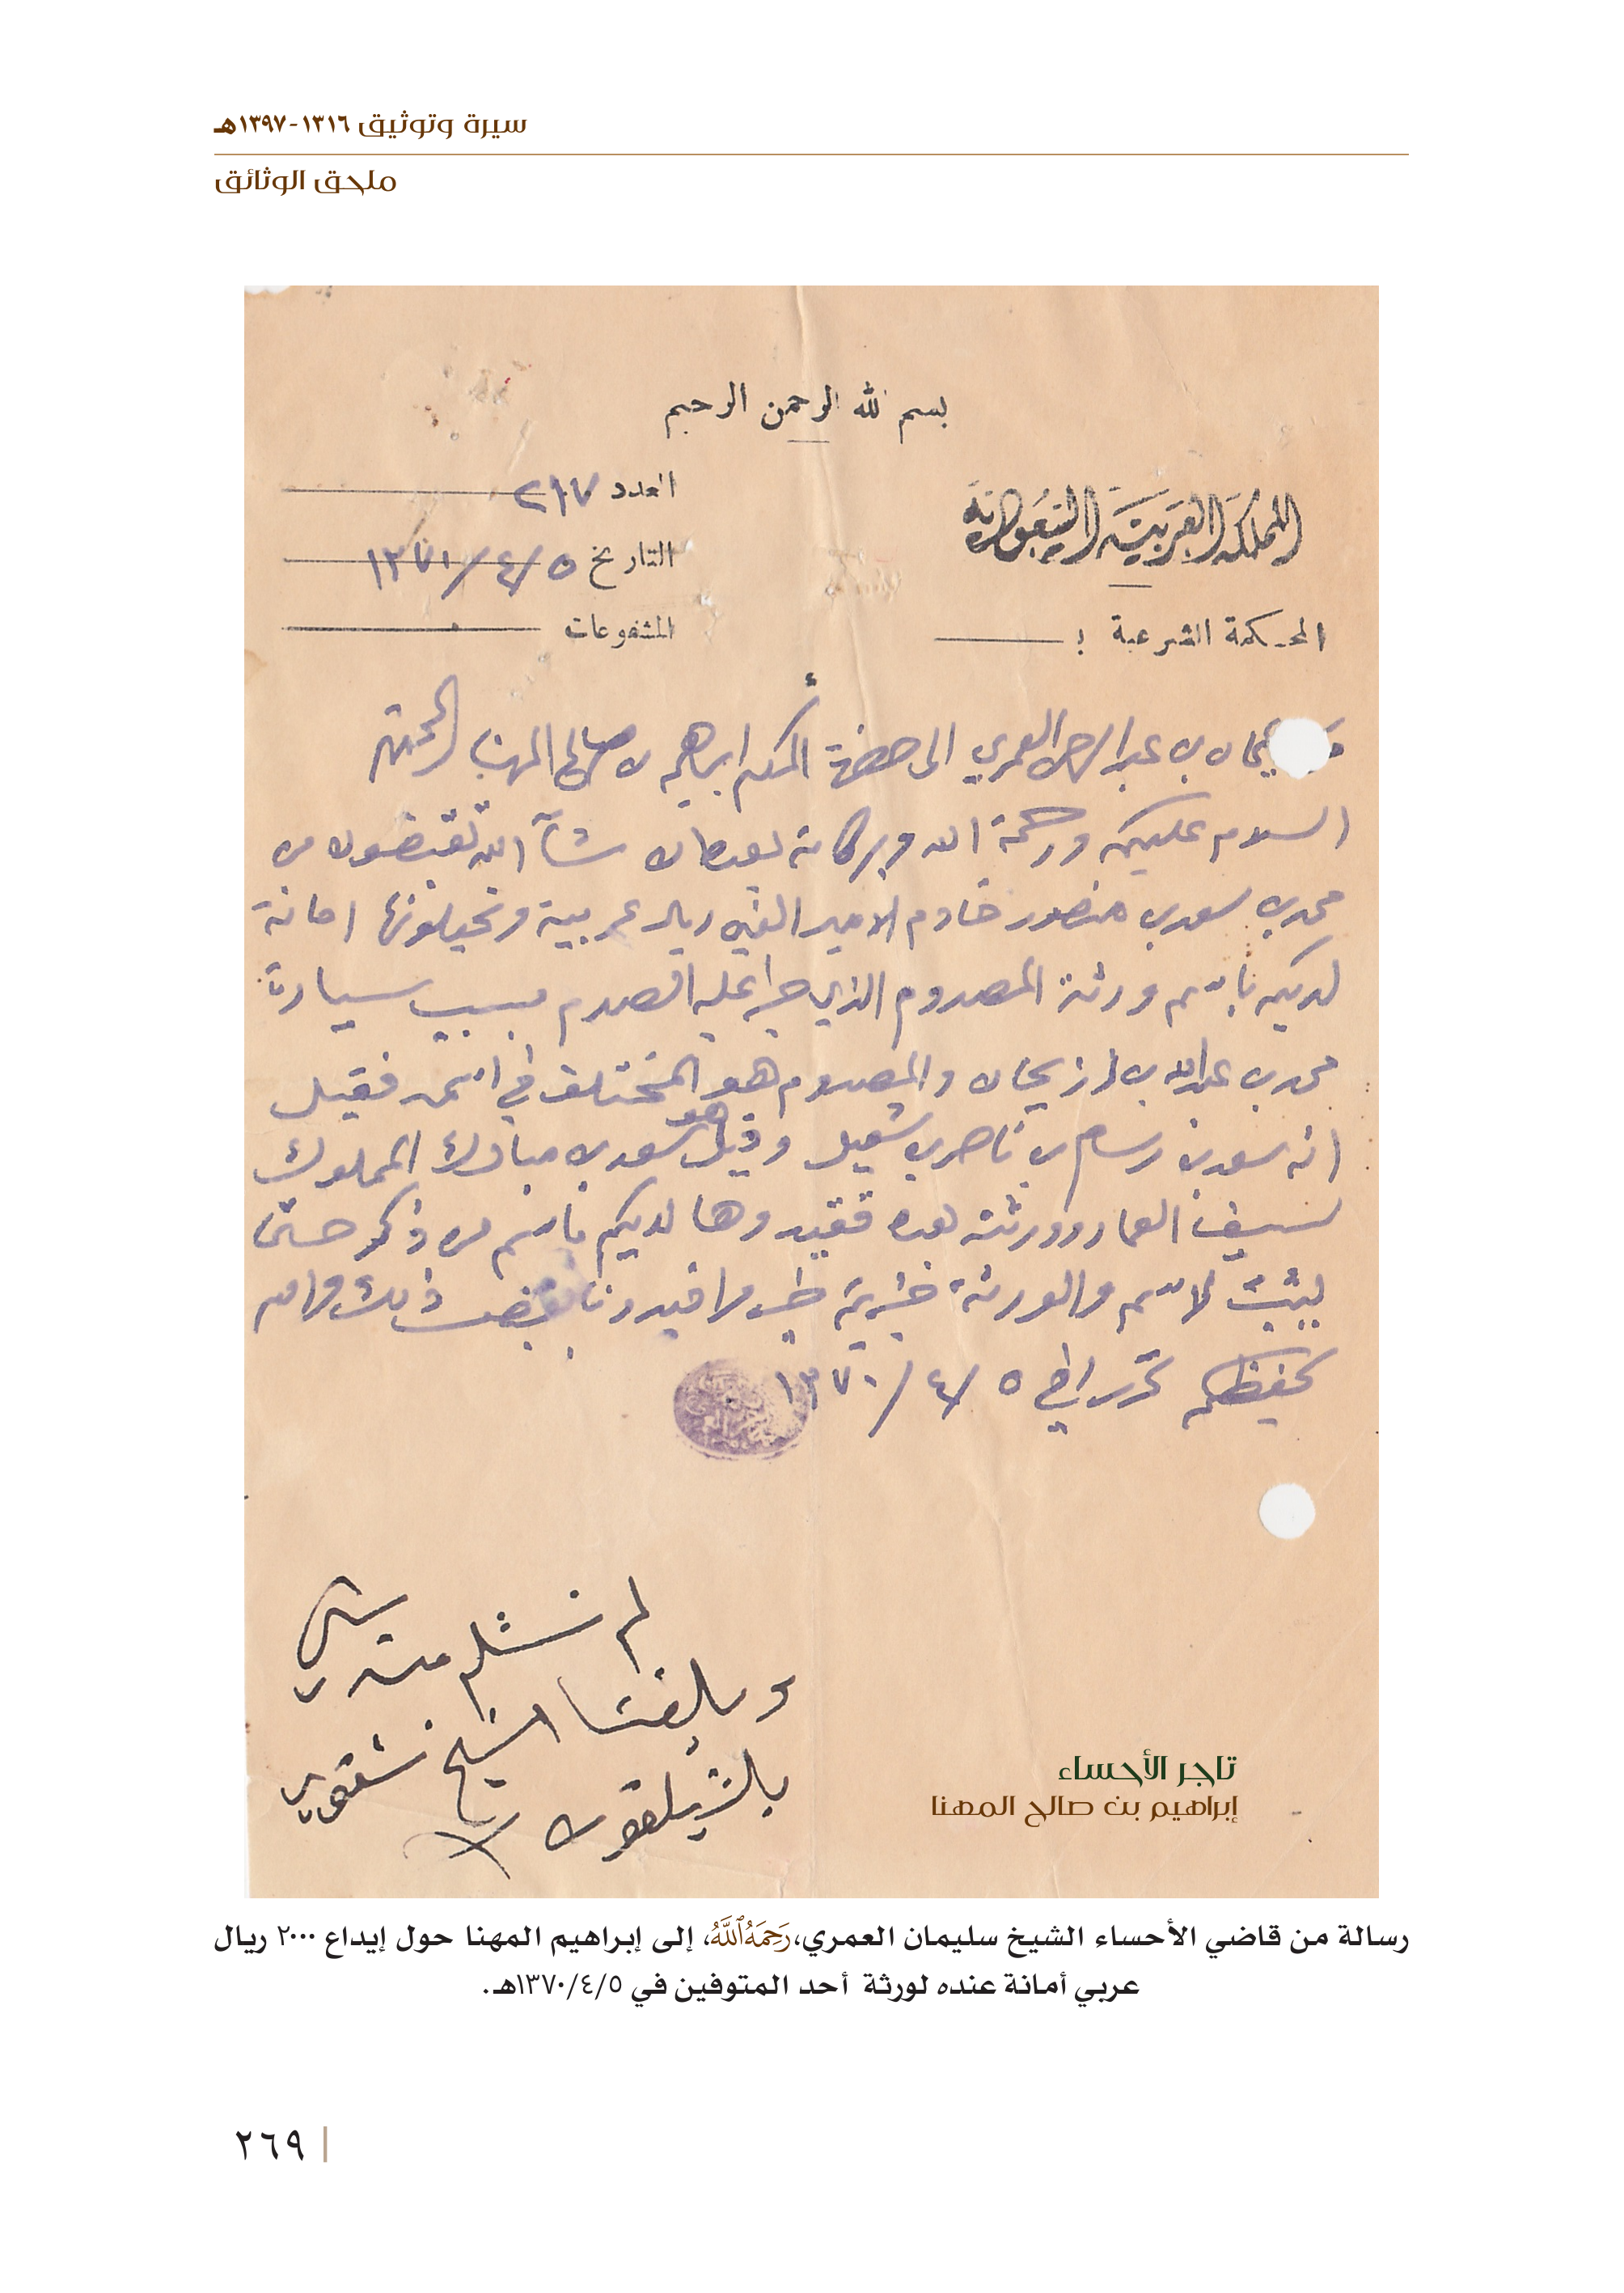 سيرة وتوثيق ١٣١٦-١٣٩٧هـ
ملحق الوثائق
بسم الله الرحمن الرحيم
المملكة العربية السعودية
العدد ٢١٧
التاريخ ٥/٤/١٣٧٠
المحكمة الشرعية :
المشفوعات
بن عبدالرحمن العمري الى حضرة المكرم ابراهيم بن صالح المهنا المحترم
السلام عليكم ورحمة الله وبركاته بعده ان شآء الله تقبضون من
محمد بن سعد بن منصور خادم الامير الفين ريال عربية وتجعلونها امانة
لديكم باسم ورثة المصدوم الذي جرا عليه الصدم بسبب سيارة
محمد بن عبدالله بن والمصدوم هو المختلف في اسمه فقيل
انه سعد بن رسام بن ناصر بن وقيل هو سعد بن مبارك المملوك
لسيف وورثته لديكم باسم من ذكر حتى
يثبت الاسم والورثة افيدونا بقبض ذلك والله
يحفظكم تحرر في ٥/٤/١٣٧٠
لم نستلم منه شي
وبلغنا الشيخ
بالتيلفون
تاجر الأحساء
إبراهيم بن صالح المهنا
رسالة من قاضي الأحساء الشيخ سليمان العمري، رَحِمَهُ ٱللَّهُ، إلى إبراهيم المهنا حول إيداع ٢٠٠٠ ريال
عربي أمانة عنده لورثة أحد المتوفين في ١٣٧٠/٤/٥هـ.
٢٦٩